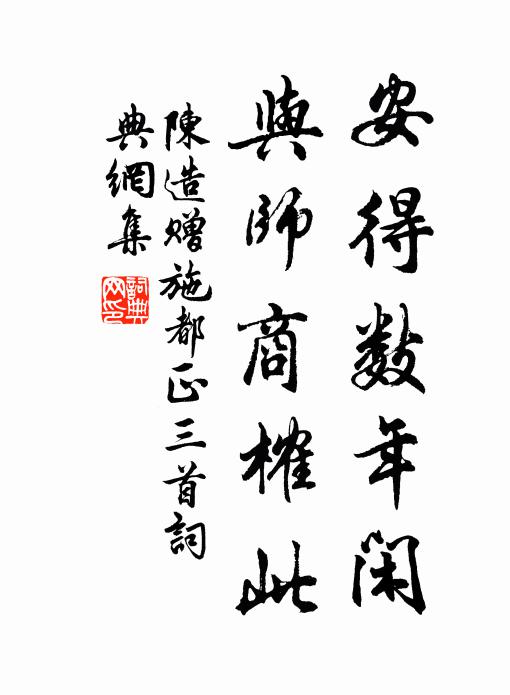 安得數年閑
與師商榷此
陳造贈施都正三首詞
典網集
詞典網印